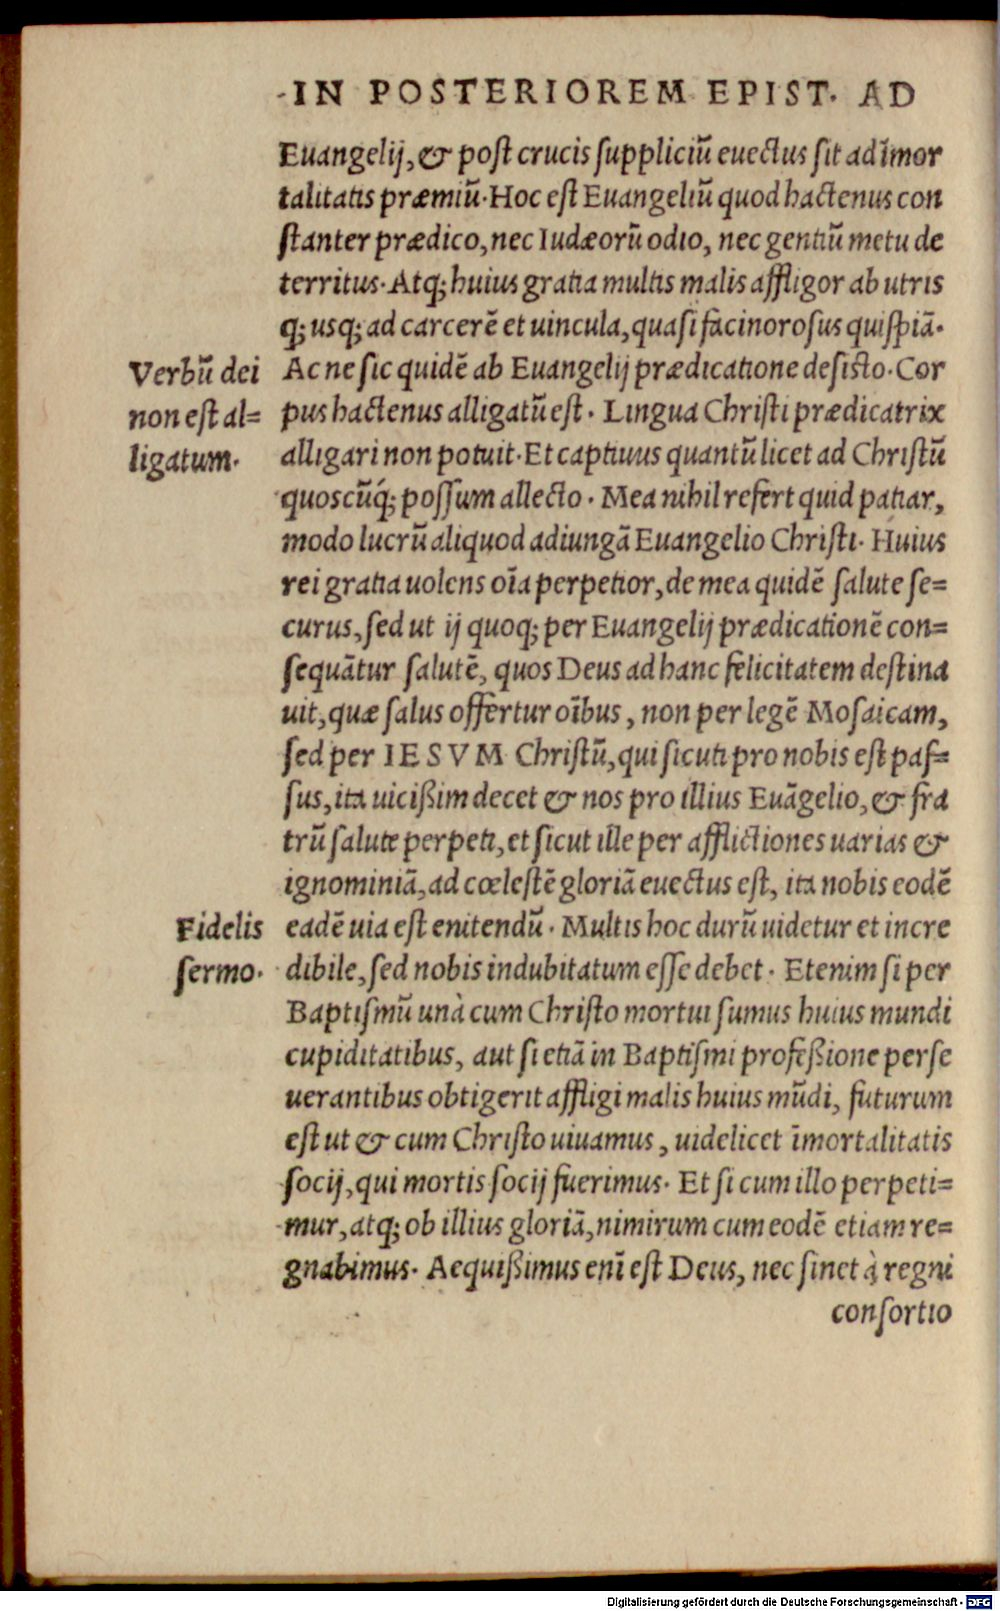 IN POSTERIOREM EPIST. AD
Euangelij, & post crucis suppliciũ euectus sit ad ĩmor
talitatis præmiũ. Hoc est Euangeliũ quod hactenus con
stanter prædico, nec Iudæorũ odio, nec gentiũ metu de
territus. Atq; huius gratia multis malis affligor ab utris
q; usq; ad carcerẽ et uincula, quasi facinorosus quispiã.
Verbũ dei
non est al=
ligatum.
Ac ne sic quidẽ ab Euangelij prædicatione desisto. Cor
pus hactenus alligatũ est. Lingua Christi prædicatrix
alligari non potuit. Et captiuus quantũ licet ad Christũ
quoscũq́; possum allecto. Mea nihil refert quid patiar,
modo lucrũ aliquod adiungã Euangelio Christi. Huius
rei gratia uolens oĩa perpetior, de mea quidẽ salute se=
curus, sed ut ij quoq; per Euangelij prædicationẽ con=
sequãtur salutẽ, quos Deus ad hanc felicitatem destina
uit, quæ salus offertur oĩbus, non per legẽ Mosaicam,
sed per IESVM Christũ, qui sicuti pro nobis est pas=
sus, ita uicißim decet & nos pro illius Euãgelio, & fra
trũ salute perpeti, et sicut ille per afflictiones uarias &
ignominiã, ad cœlestẽ gloriã euectus est, ita nobis eodẽ
Fidelis
sermo.
eadẽ uia est enitendũ. Multis hoc durũ uidetur et incre
dibile, sed nobis indubitatum esse debet. Etenim si per
Baptismũ unà cum Christo mortui sumus huius mundi
cupiditatibus, aut si etiã in Baptismi profeßione perse
uerantibus obtigerit affligi malis huius mũdi, futurum
est ut & cum Christo uiuamus, uidelicet ĩmortalitatis
socij, qui mortis socij fuerimus. Et si cum illo perpeti=
mur, atq; ob illius gloriã, nimirum cum eodẽ etiam re=
gnabimus. Aequißimus enĩ est Deus, nec sinet à regni
consortio
Digitalisierung gefördert durch die Deutsche Forschungsgemeinschaft - DFG